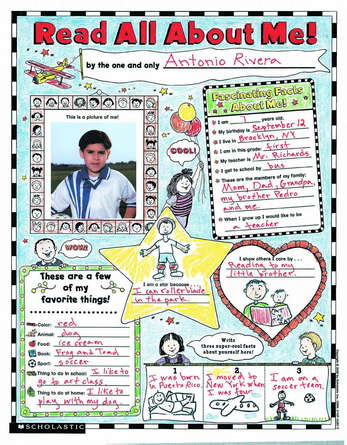 Read All About Me!
by the one and only Antonio Rivera
This is a picture of me!
Fascinating Facts
About Me!
I am 7 years old.
My birthday is September 12
I live in Brooklyn, NY
I am in this grade: first
My teacher is Mr. Richards
I get to school by bus
These are the members of my family:
Mom, Dad, Grandpa,
my brother Pedro
and me
When I grow up I would like to be
a teacher
COOL!
WOW!
These are a few
of my
favorite things!
Color: red
Animal: dog
Food: ice cream
Book: Frog and Toad
Sport: soccer
Thing to do in school: I like to
go to art class
Thing to do at home: I like to
play with my dog
I am a star because . . .
I can rollerblade
in the park.
I show others I care by . . .
Reading to my
little brother.
Write
three super-cool facts
about yourself here!
1
I was born
in Puerto Rico.
2
I moved to
New York when
I was four.
3
I am on a
soccer team.
SCHOLASTIC